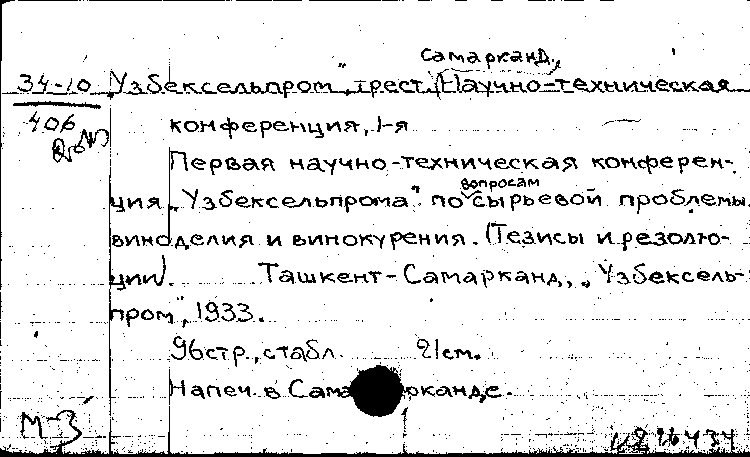 Самарканд.,
34-10 „Узбексельпром", трест. (Научно-техническая
406 конференция, 1-я
Первая научно-техническая конферен-
ция „Узбексельпрома" по вопросам сырьевой проблемы
виноделия и винокурения. (Тезисы и резолю-
ции). Ташкент-Самарканд, „Узбексель-
пром", 1933.
96 стр., с табл. 21 см.
Напеч. в Самарканде.
М-3